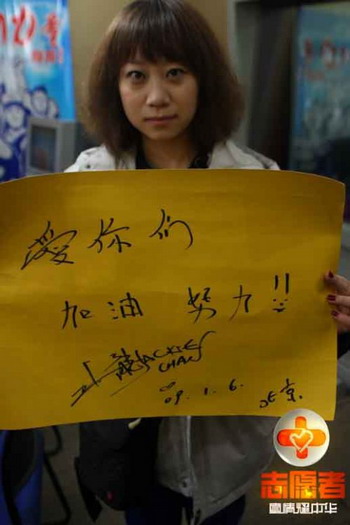 爱你们
加油 努力!!
JACKIE
CHAN
09.1.6. 北京.
志愿者